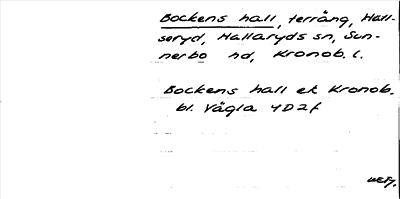 Bockens hall, terräng, Hall-
seryd, Hallaryds sn, Sun-
nerbo hd, Kronob. l.
Bockens hall ek Kronob.
bl. Vägla 4D2f